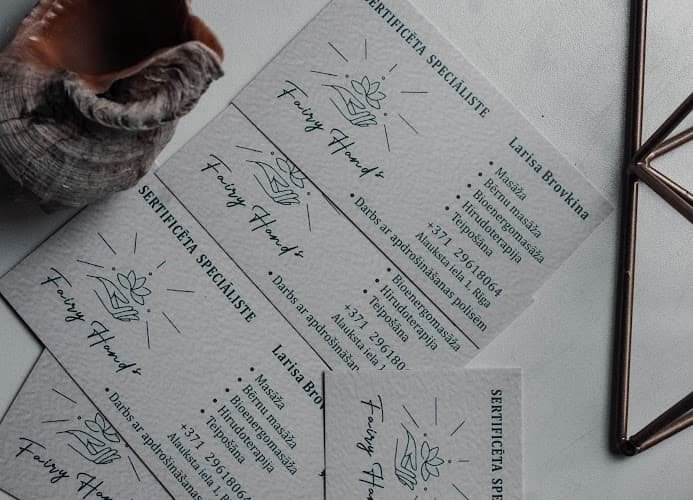 SERTIFICĒTA SPECIĀLISTE
Fairy Hands
Larisa Brovkina
• Masāža
• Bērnu masāža
• Bioenergomasāža
• Hirudoterapija
• Teipošana
• Darbs ar apdrošināšanas polisēm
+371 29618064
Alauksta iela 1, Rīga
Fairy Hands
• Bioenergomasāža
• Hirudoterapija
• Teipošana
• Darbs ar apdrošināšanas polisēm
+371 29618064
Alauksta iela 1
SERTIFICĒTA SPECIĀLISTE
Fairy Hands
Larisa Brov
• Masāža
• Bērnu masāža
• Bioenergomasāža
• Hirudoterapija
• Teipošana
• Darbs ar apdrošināšanas
+371 29618064
Alauksta iela 1, Rī
Fairy Hands
SERTIFICĒTA SPE
Fairy H